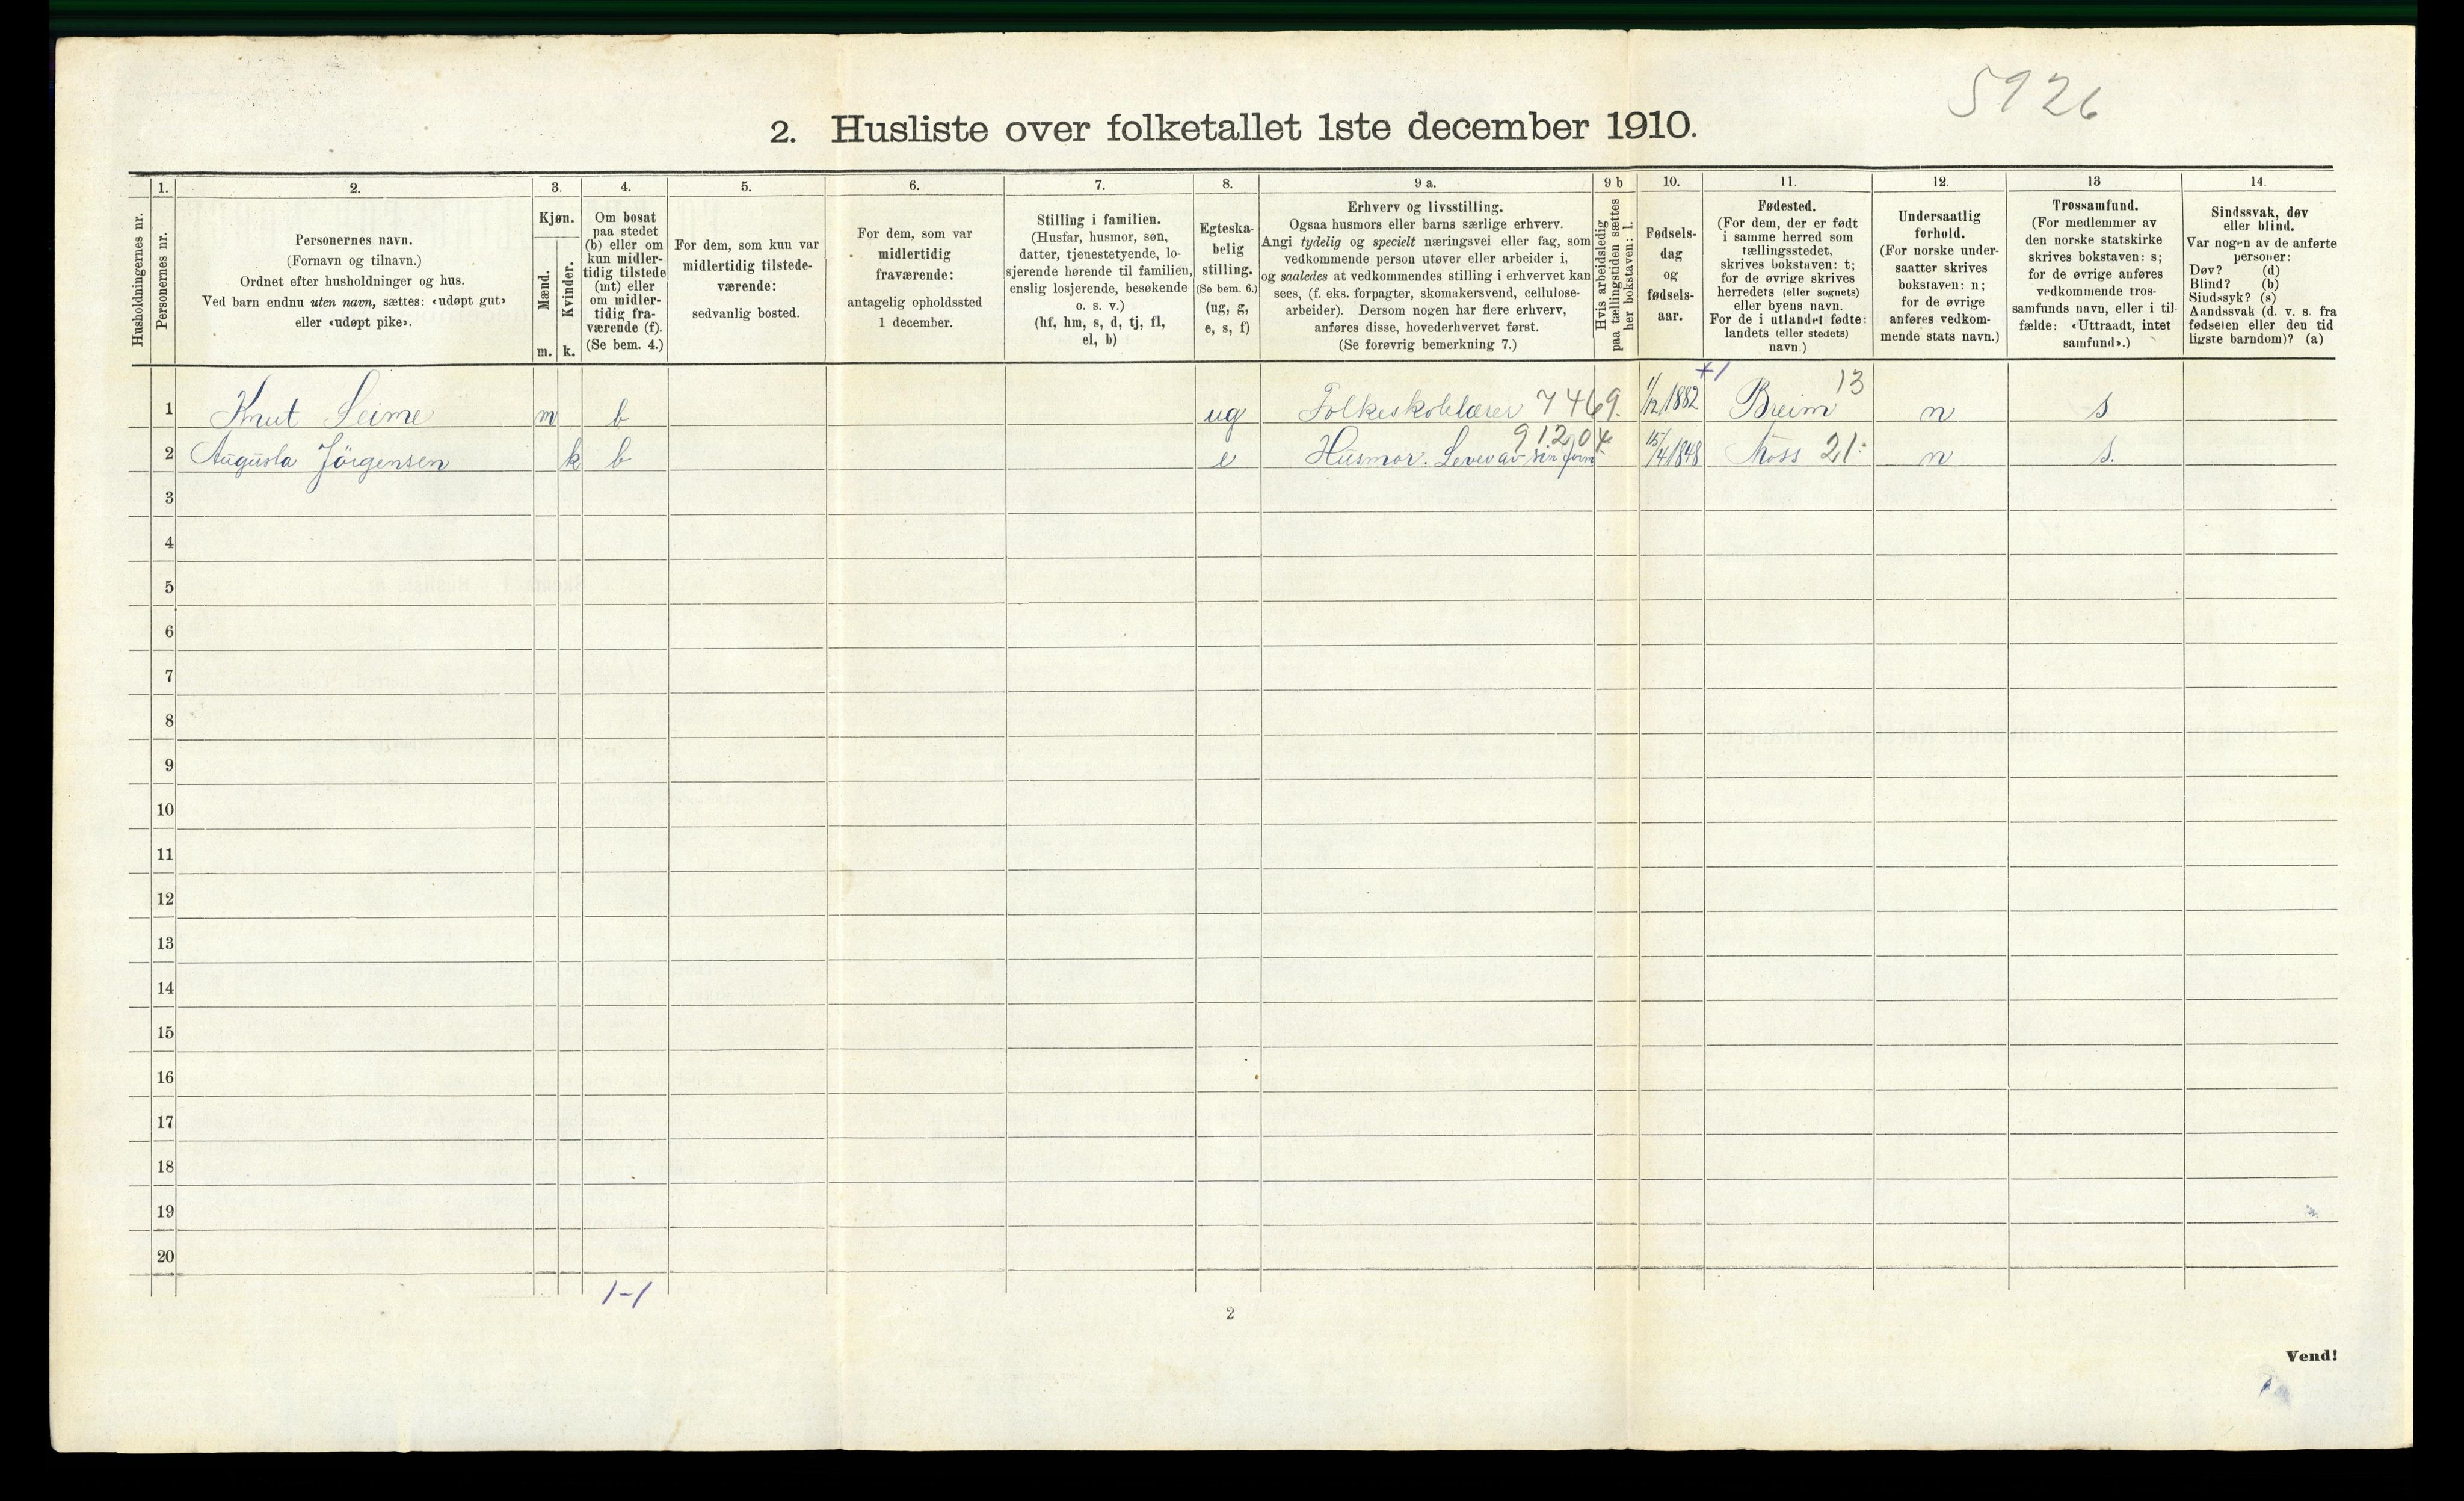 5926
2. Husliste over folketallet 1ste december 1910.
Husholdningernes nr.
1.
Personernes nr.
2.
Personernes navn.
(Fornavn og tilnavn.)
Ordnet efter husholdninger og hus.
Ved barn endnu uten navn, sættes: «udøpt gut»
eller «udøpt pike».
3.
Kjøn.
Mænd.
Kvinder.
m. k.
4.
Om bosat
paa stedet
(b) eller om
kun midler-
tidig tilstede
(mt) eller
om midler-
tidig fra-
værende (f).
(Se bem. 4.)
5.
For dem, som kun var
midlertidig tilstede-
værende:
sedvanlig bosted.
6.
For dem, som var
midlertidig
fraværende:
antagelig opholdssted
1 december.
7.
Stilling i familien.
(Husfar, husmor, søn,
datter, tjenestetyende, lo-
sjerende hørende til familien,
enslig losjerende, besøkende
o. s. v.)
(hf, hm, s, d, tj, fl,
el, b)
8.
Egteska-
belig
stilling.
(Se bem. 6.)
(ug, g,
e, s, f)
9 a.
Erhverv og livsstilling.
Ogsaa husmors eller barns særlige erhverv.
Angi tydelig og specielt næringsvei eller fag, som
vedkommende person utøver eller arbeider i,
og saaledes at vedkommendes stilling i erhvervet kan
sees, (f. eks. forpagter, skomakersvend, cellulose-
arbeider). Dersom nogen har flere erhverv,
anføres disse, hovederhvervet først.
(Se forøvrig bemerkning 7.)
9 b
Hvis arbeidsledig
paa tællingstiden sættes
her bokstaven: l.
10.
Fødsels-
dag
og
fødsels-
aar.
11.
Fødested.
(For dem, der er født
i samme herred som
tællingsstedet,
skrives bokstaven: t;
for de øvrige skrives
herredets (eller sognets)
eller byens navn.
For de i utlandet fødte:
landets (eller stedets)
navn.)
12.
Undersaatlig
forhold.
(For norske under-
saatter skrives
bokstaven: n;
for de øvrige
anføres vedkom-
mende stats navn.)
13
Trossamfund.
(For medlemmer av
den norske statskirke
skrives bokstaven: s;
for de øvrige anføres
vedkommende tros-
samfunds navn, eller i til-
fælde: «Uttraadt, intet
samfund».)
14.
Sindssvak, døv
eller blind.
Var nogen av de anførte
personer:
Døv? (d)
Blind? (b)
Sindssyk? (s)
Aandssvak (d. v. s. fra
fødselen eller den tid
ligste barndom)? (a)
1 Knut Leime m b ug Folkeskolelærer 7469. 1/12 1882 +1 Breim 13 n s
2 Augusta Jörgensen k b e Husmor. Lever av sin form. 91204 15/4 1848 Moss 21. n s.
3
4
5
6
7
8
9
10
11
12
13
14
15
16
17
18
19
20
1-1
2
Vend!